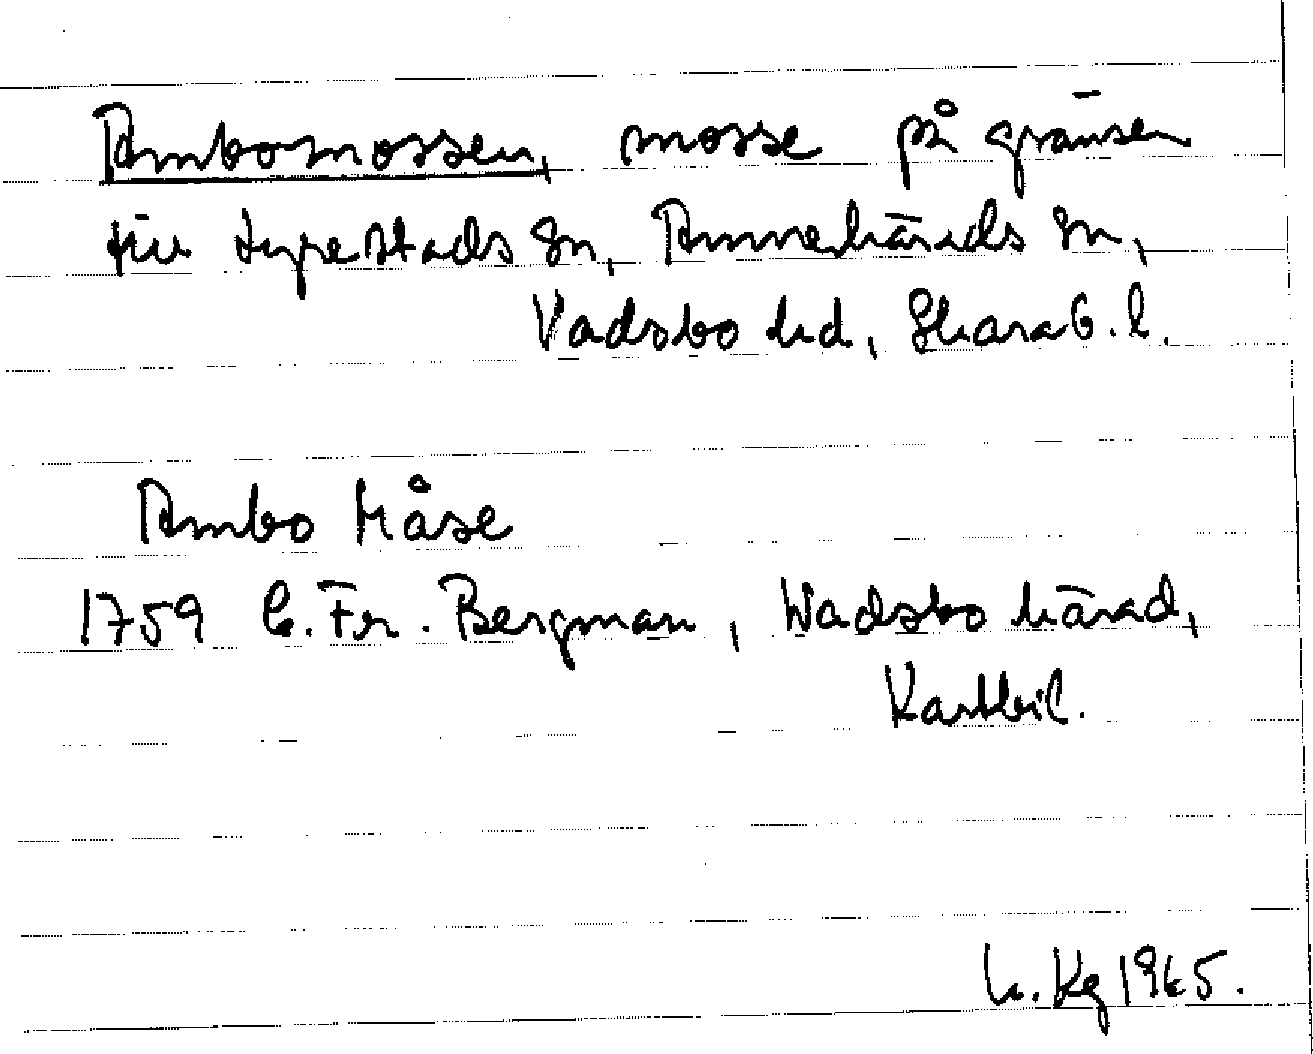 Ambomossen, mosse på gränsen
till Lyrestads sn, Amnehärads sn,
Vadsbo hd, Skarab. l.
Ambo Måse
1759 C. Fr. Bergman, Wadsbo härad,
Kartbil.
Kg 1965.